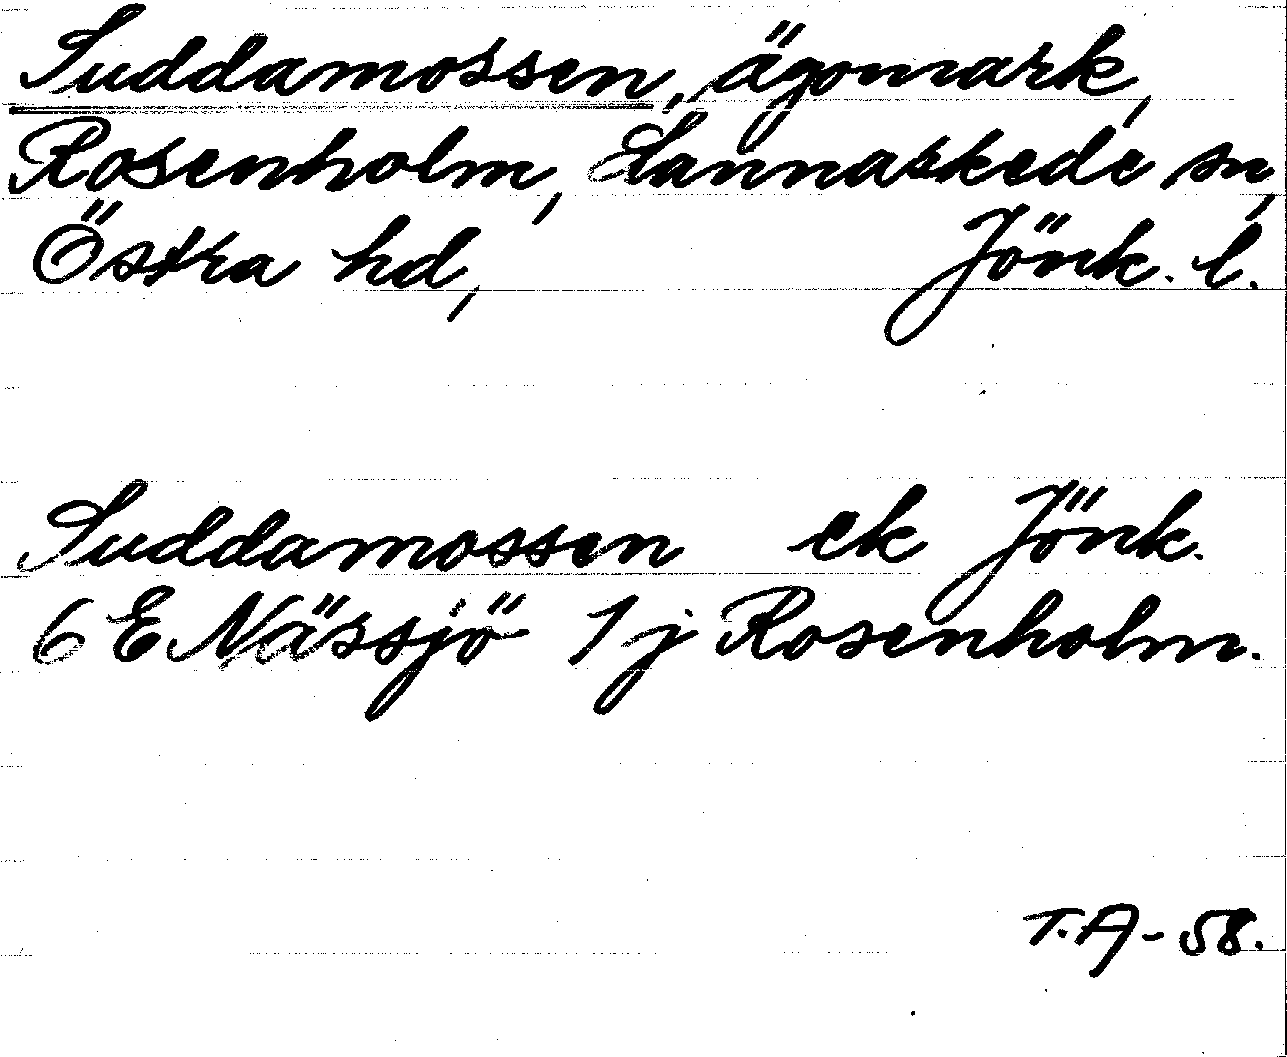 Suddamossen, ägomark,
Rosenholm, Lannaskede sn,
Östra hd, Jönk. l.
Suddamossen ek Jönk.
6 E Nässjö 1 j Rosenholm.
T.A-58.